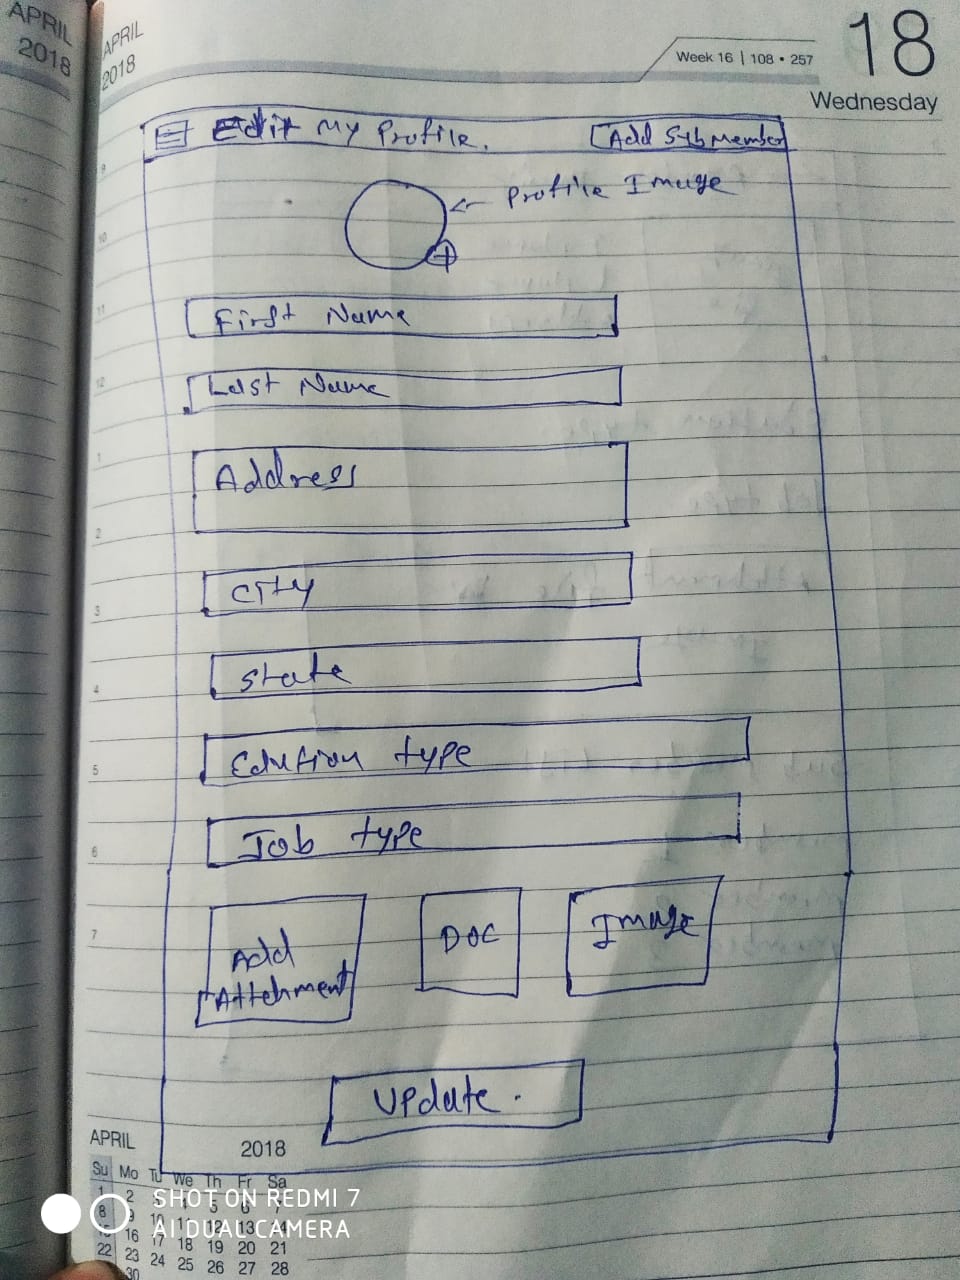 APRIL
2018
APRIL
2018
Week 16 | 108 • 257
18
Wednesday
Edit My Profile.
Add Sub Member
Profile Image
First Name
Last Name
Address
City
State
Edution type
Job type
Add
Attehment
DOC
Image
Update.
9
10
11
12
1
2
3
4
5
6
7
APRIL 2018
Su Mo Tu We Th Fr Sa
1 2 3 4 5 6 7
8 9 10 11 12 13 14
15 16 17 18 19 20 21
22 23 24 25 26 27 28
30
SHOT ON REDMI 7
AI DUAL CAMERA